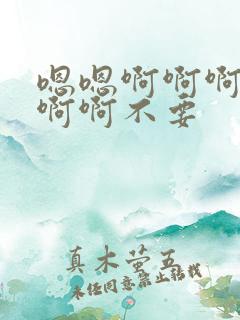 嗯嗯啊啊啊
啊啊不要
真木萤五
未经同意禁止转载